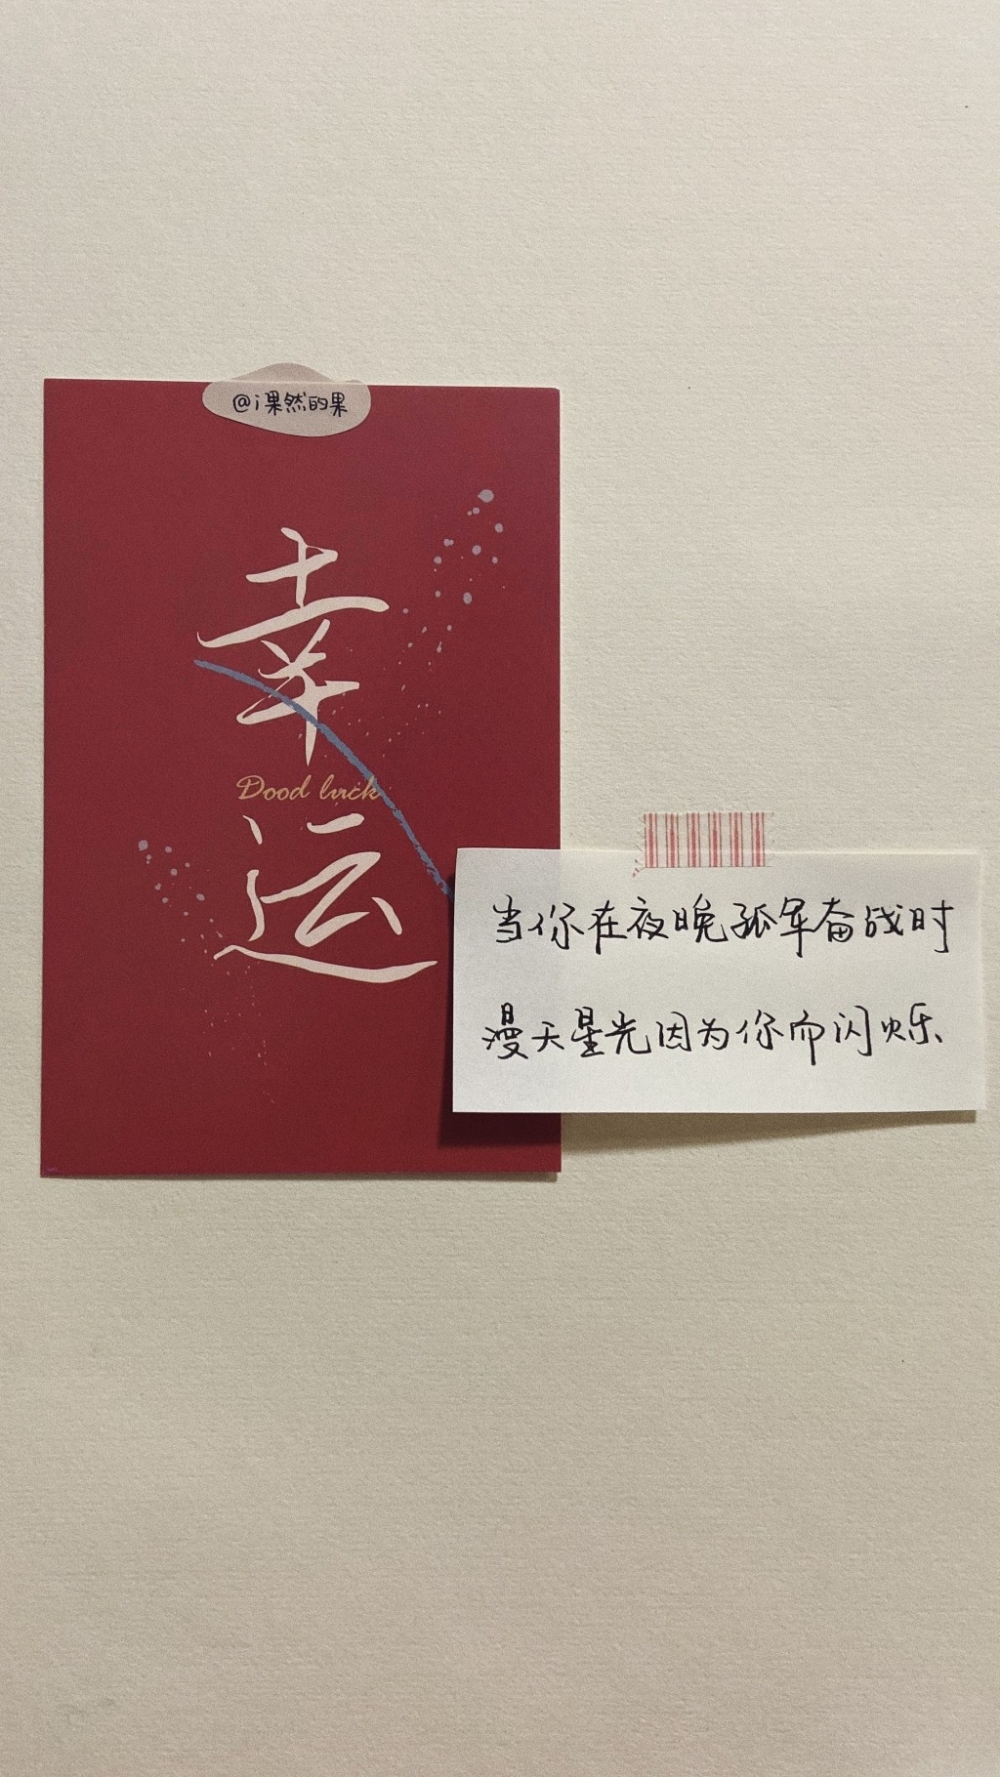 @i果然的果
幸
Dood luck
运
当你在夜晚孤军奋战时
漫天星光因为你而闪烁